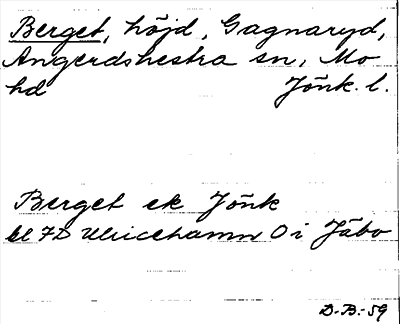 Berget, höjd, Gagnaryd,
Angerdshestra sn, Mo
hd Jönk. l.
Berget ek Jönk
bl 7D Ulricehamn O i Jäbo
D.-B.-59